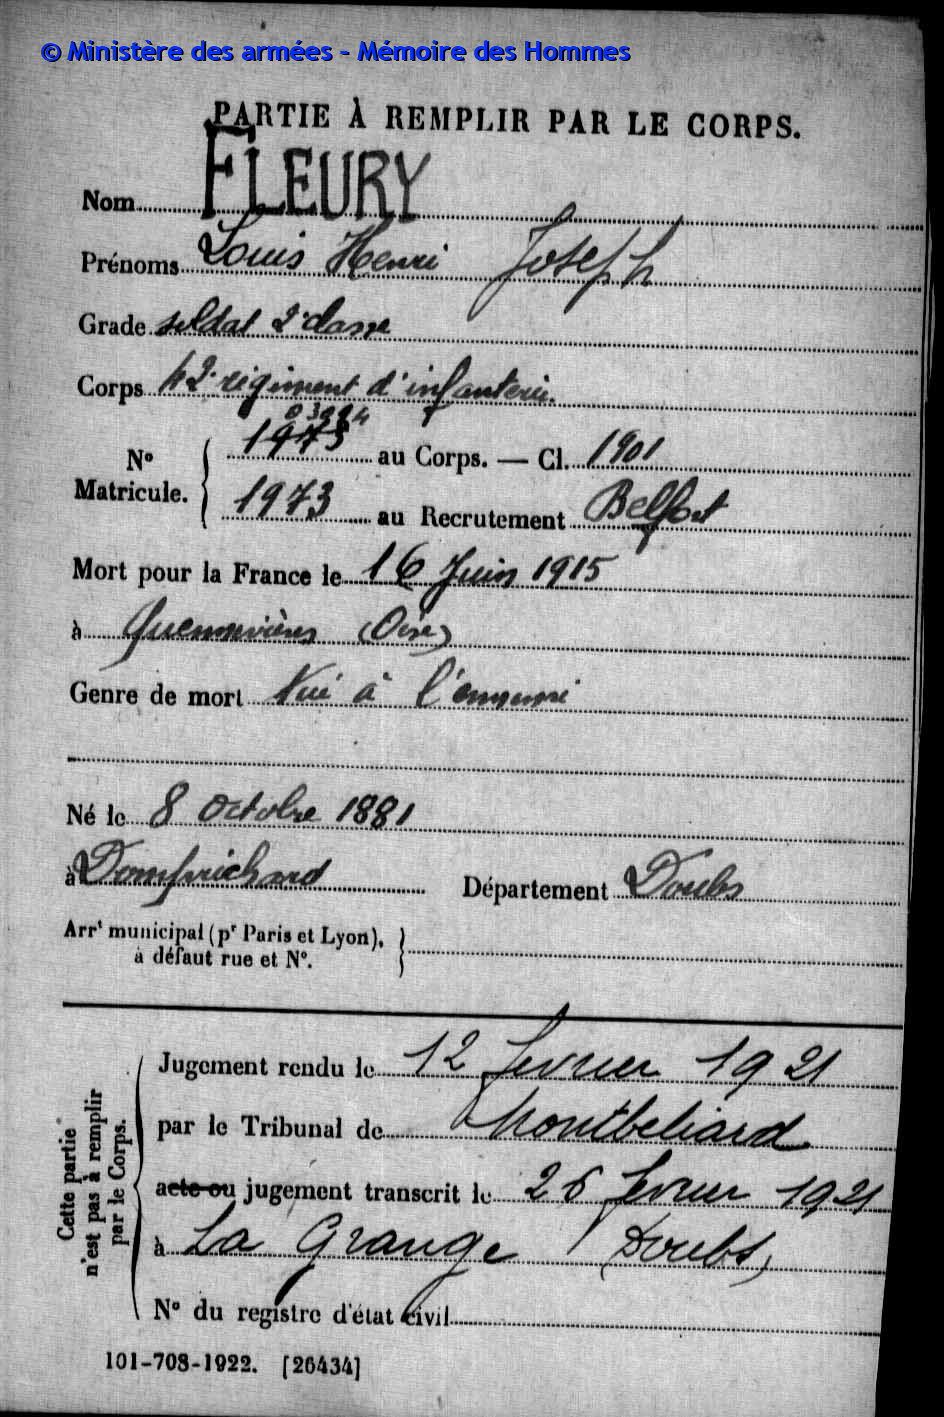 © Ministère des armées - Mémoire des Hommes
PARTIE À REMPLIR PAR LE CORPS.
Nom FLEURY
Prénoms Louis Henri Joseph
Grade soldat 2e classe
Corps 42e régiment d'infanterie
03994
N° Matricule. 1973 au Corps. — Cl. 1901
1973 au Recrutement Belfort
Mort pour la France le 16 Juin 1915
à Quennevières (Oise)
Genre de mort Tué à l'ennemi
Né le 8 octobre 1881
à Domprichard Département Doubs
Arrt municipal (pr Paris et Lyon),
à défaut rue et N°.
Cette partie n'est pas à remplir par le Corps.
Jugement rendu le 12 fevrier 1921
par le Tribunal de Montbeliard
acte ou jugement transcrit le 26 fevrier 1921
à La Grange (Doubs)
N° du registre d'état civil
101-708-1922. [26434]